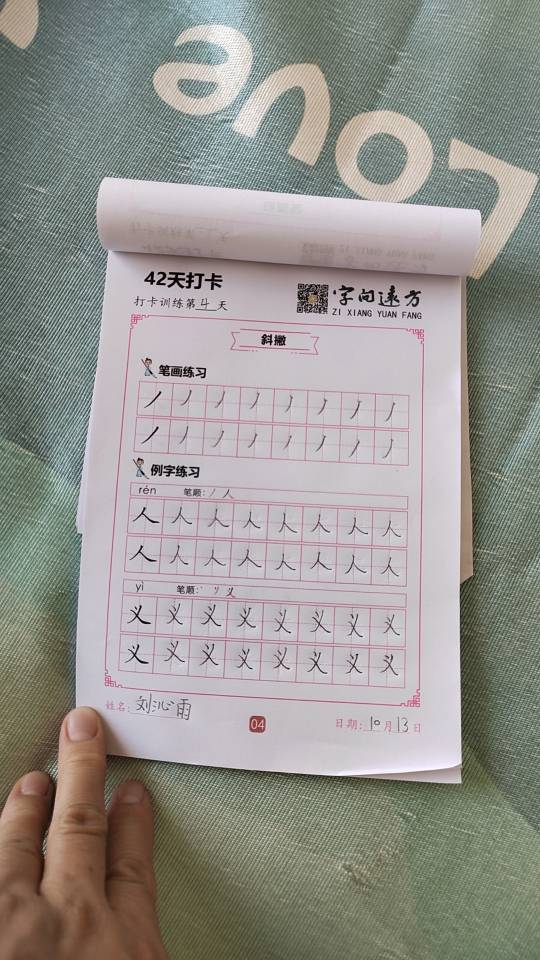 Love
42天打卡
打卡训练第 4 天
字向速方
ZI XIANG YUAN FANG
斜撇
笔画练习
丿 丿 丿 丿 丿 丿 丿 丿
丿 丿 丿 丿 丿 丿 丿 丿
例字练习
rén 笔顺: 丿 人
人 人 人 人 人 人 人 人
人 人 人 人 人 人 人 人
yì 笔顺: 丶 丷 义
义 义 义 义 义 义 义 义
义 义 义 义 义 义 义 义
姓名: 刘沁雨
04
日期: 10 月 13 日